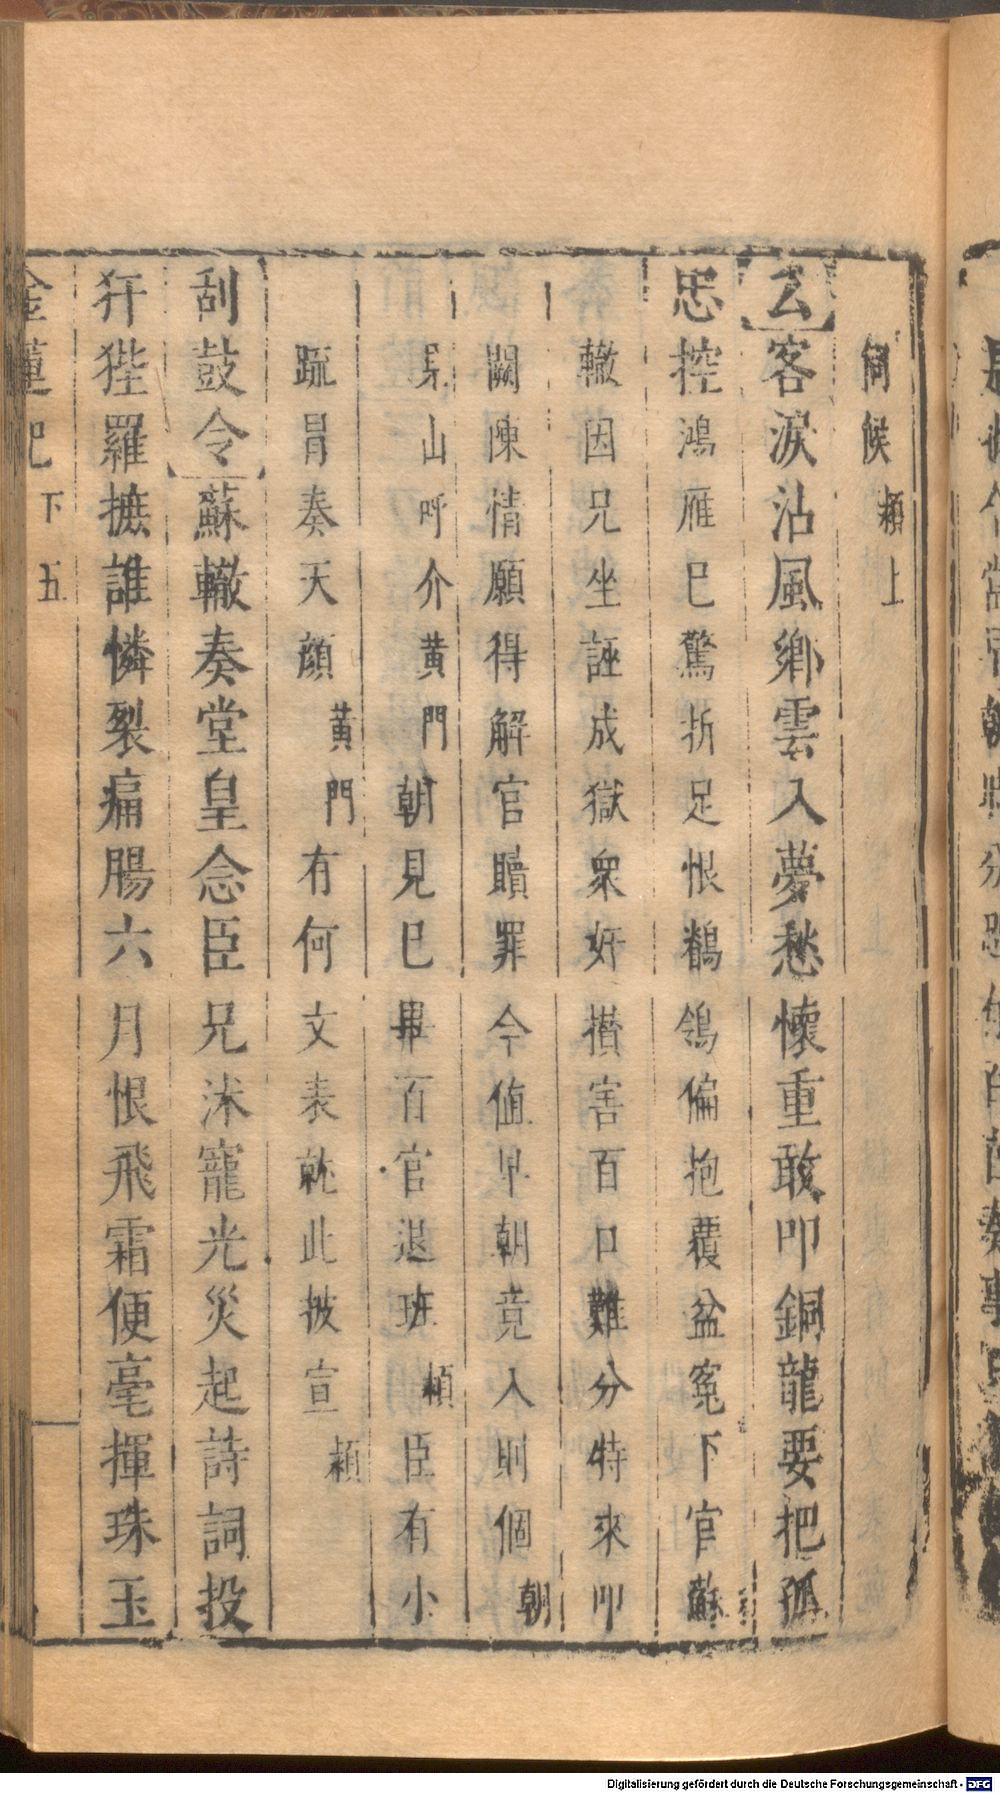 伺候 頼上
厶客淚沾風鄉雲入夢愁懷重敢叩銅龍要把孤
忠控鴻雁巳驚折足恨鶺鴒偏抱覆盆寃下官蘇
轍因兄坐誣成獄衆奸㨻害百口難分特來叩
闕陳情願得解官贖罪今值早朝竟入則個朝
呆山呼介黃門朝見巳畢百官退班頼臣有小
疏冐奏天顔黃門有何文表就此披宣頼
刮鼓令蘇轍奏堂皇念臣兄沐寵光災起詩詞投
犴狴羅摭誰憐裂痛腸六月恨飛霜便毫揮珠玉
金蓮記 下 五
Digitalisierung gefördert durch die Deutsche Forschungsgemeinschaft - DFG